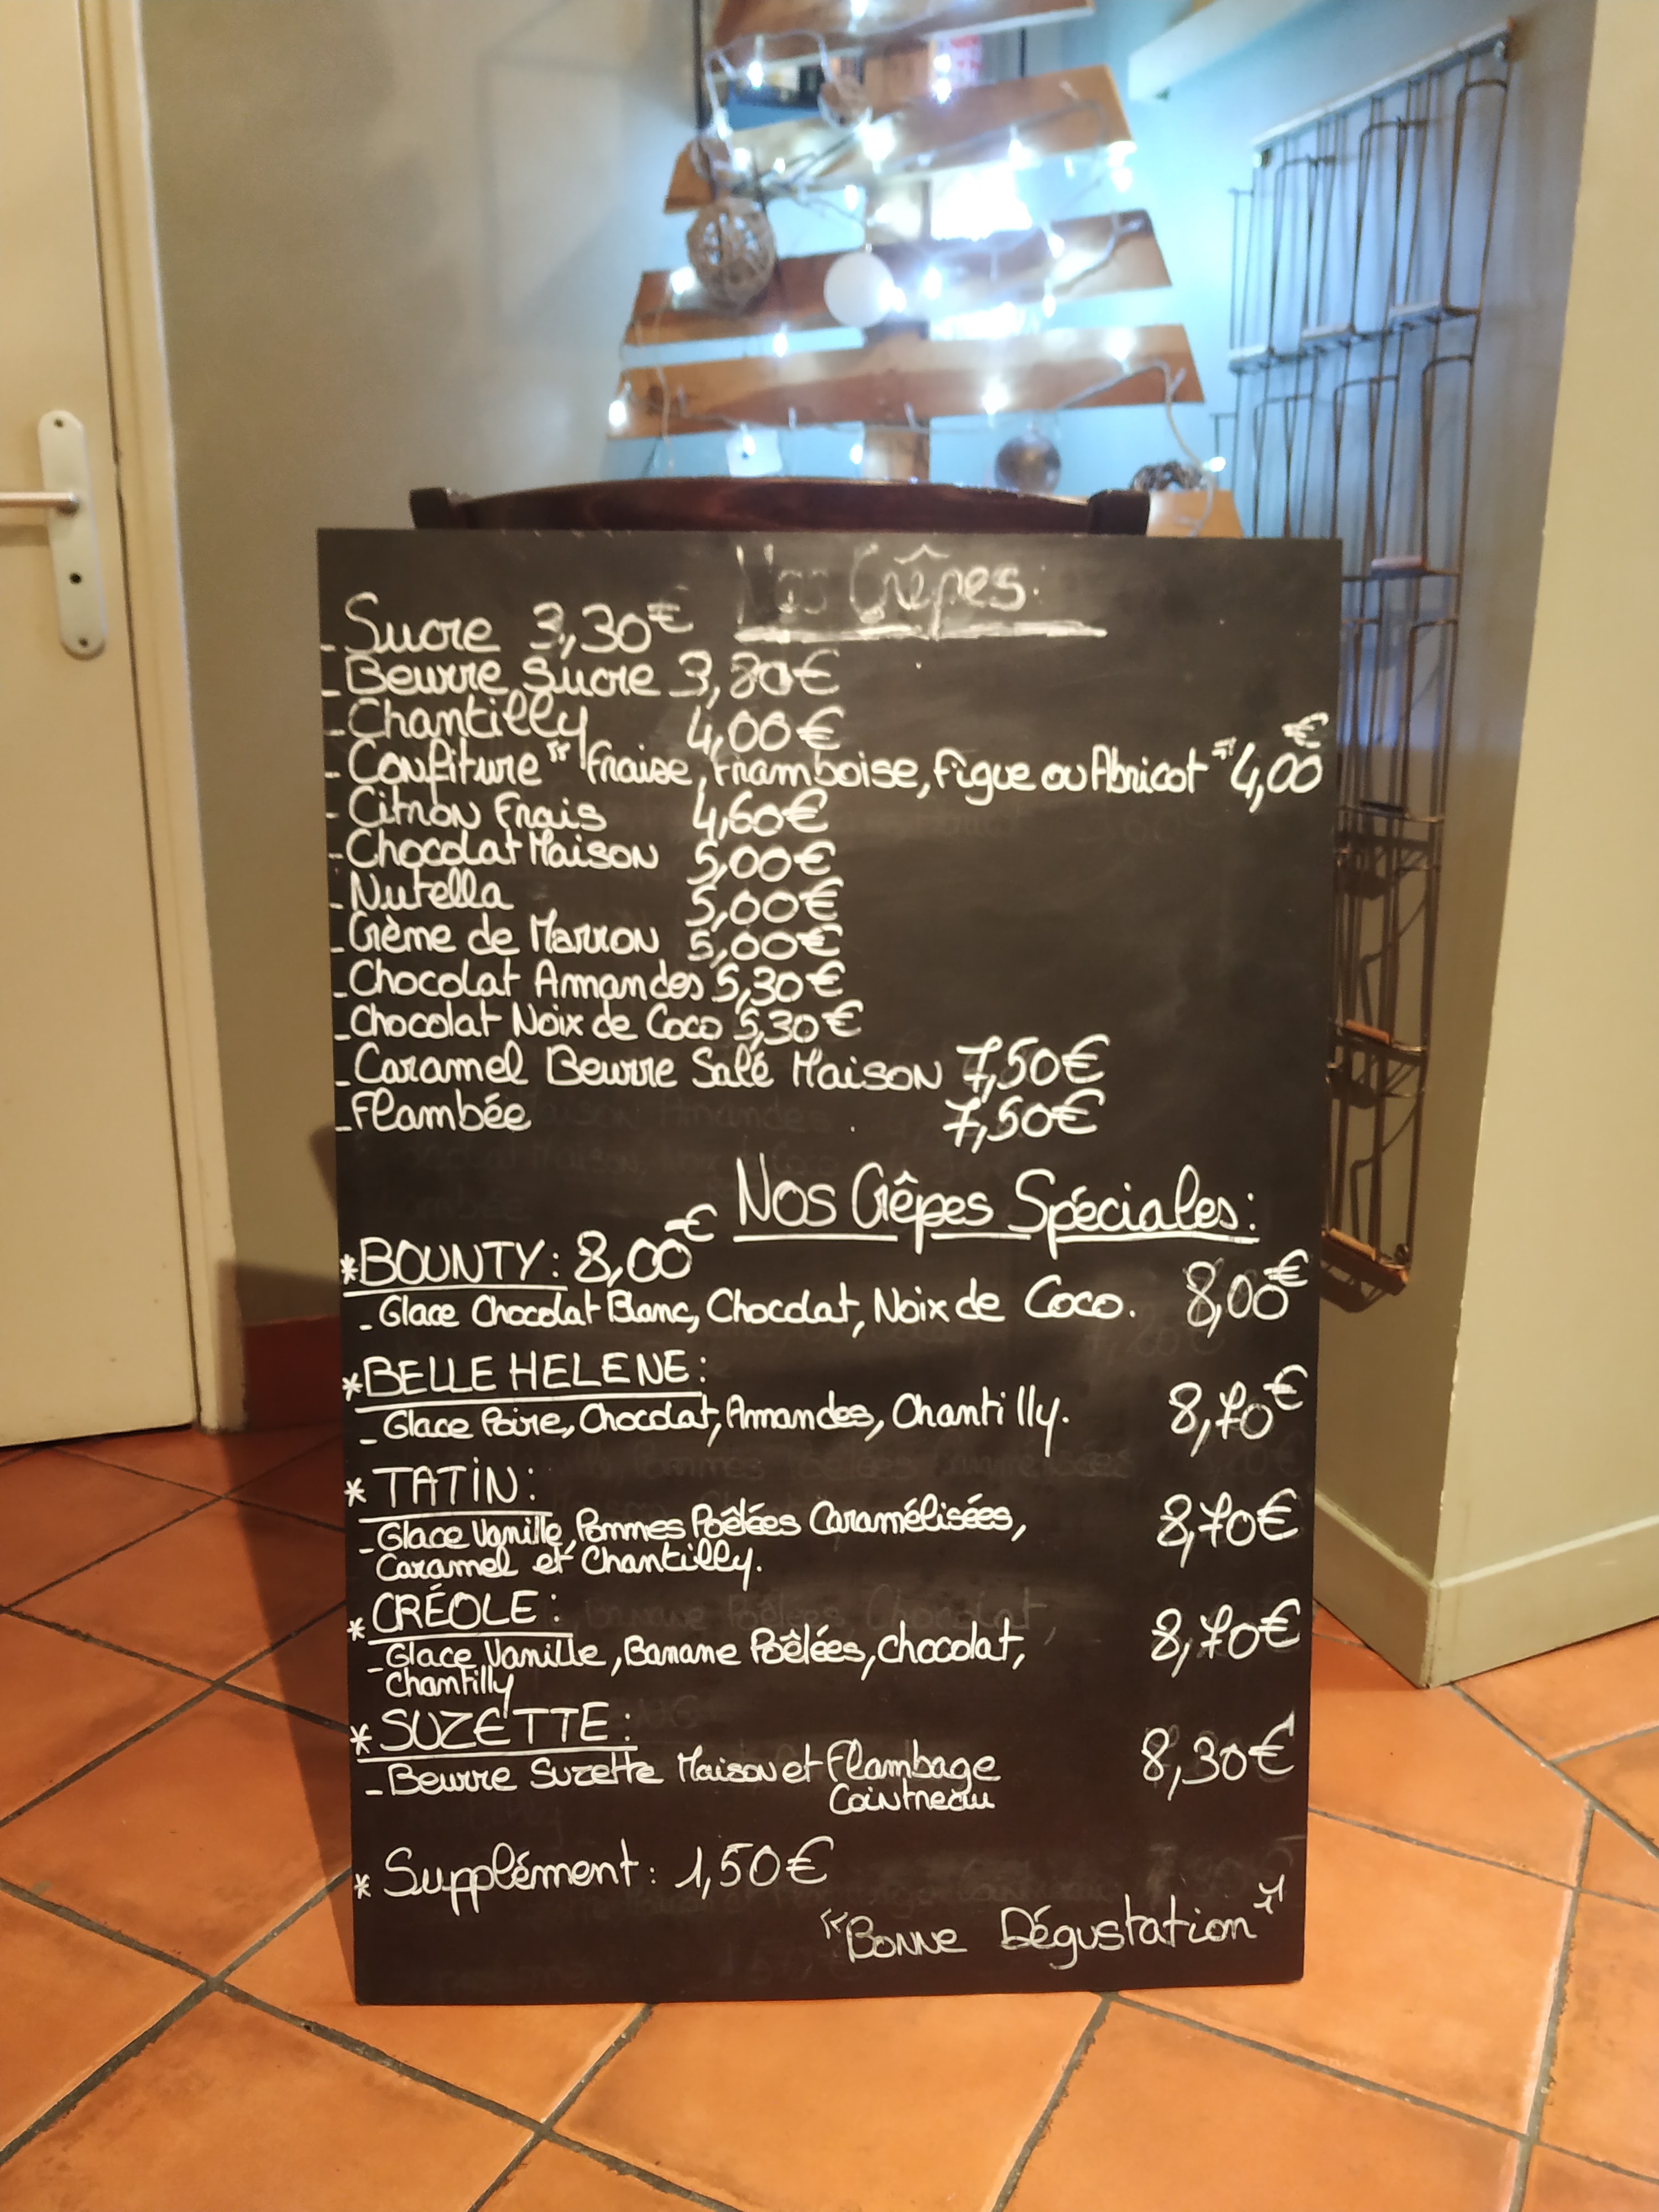 Nos Crêpes:
- Sucre 3,30€
- Beurre Sucre 3,80€
- Chantilly 4,00€
- Confiture " Fraise, Framboise, Figue ou Abricot " 4,00€
- Citron Frais 4,60€
- Chocolat Maison 5,00€
- Nutella 5,00€
- Crème de Marron 5,00€
- Chocolat Amandes 5,30€
- Chocolat Noix de Coco 5,30€
- Caramel Beurre Salé Maison 7,50€
- Flambée 7,50€
Nos Crêpes Spéciales:
* BOUNTY: 8,00€
- Glace Chocolat Blanc, Chocolat, Noix de Coco. 8,00€
* BELLE HELENE:
- Glace Poire, Chocolat, Amandes, Chantilly. 8,70€
* TATIN:
- Glace Vanille, Pommes Poêlées Caramélisées, 8,70€
Caramel et Chantilly.
* CRÉOLE:
- Glace Vanille, Banane Poêlées, chocolat, 8,70€
Chantilly
* SUZETTE:
- Beurre Suzette Maison et Flambage 8,30€
Cointreau
* Supplément: 1,50€
"Bonne Dégustation"